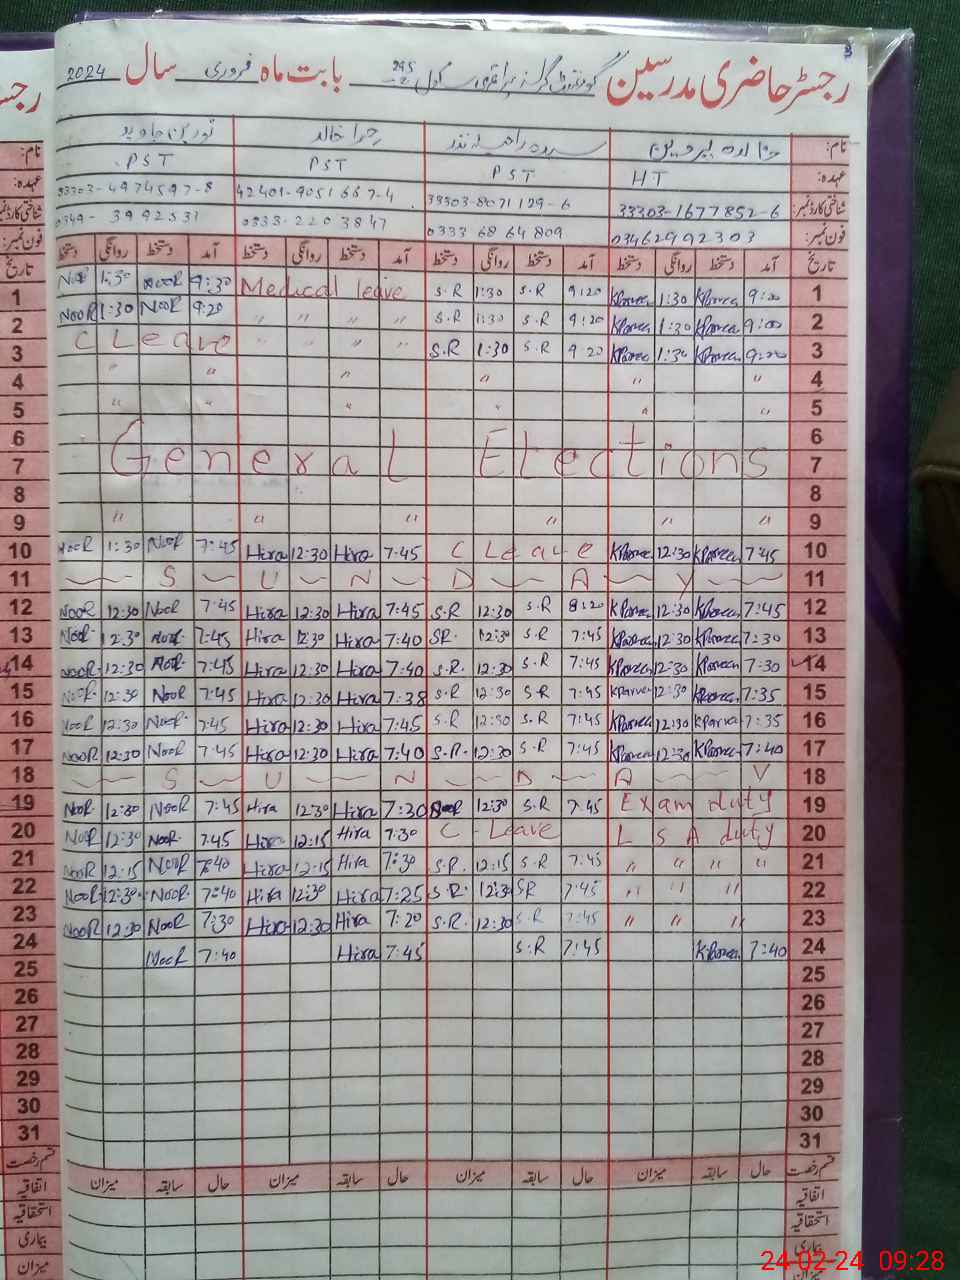 رجسٹر حاضری مدرسین گورنمنٹ گرلز پرائمری سکول 295 بابت ماہ فروری سال 2024
نام: خالدہ پروین سیدہ راضیہ نذر حرا خالد نورین جاوید
عہدہ: HT PST PST PST
شناختی کارڈ نمبر: 33303-1677852-6 33303-8071129-6 42401-9051667-4 33303-4974597-8
فون نمبر: 03462992303 0333 6864809 0333-2203847 0349-3992531
تاریخ آمد دستخط روانگی دستخط آمد دستخط روانگی دستخط آمد دستخط روانگی دستخط آمد دستخط روانگی دستخط
NooR 1:30 NooR 9:30 Medical leave S.R 1:30 S.R 9:20 KParveen 1:30 KParveen 9:00 1
NooR 1:30 NooR 9:20 " " " " S.R 1:30 S.R 9:20 KParveen 1:30 KParveen 9:00 2
C Leave " " " " S.R 1:30 S.R 9:20 KParveen 1:30 KParveen 9:00 3
" " " " " " 4
" " " " " " 5
6
General Elections 7
8
" " " " " " 9
NooR 1:30 NooR 7:45 Hira 12:30 Hira 7:45 C Leave KParveen 12:30 KParveen 7:45 10
S U N D A Y 11
NooR 12:30 NooR 7:45 Hira 12:30 Hira 7:45 S.R 12:30 S.R 8:20 KParveen 12:30 KParveen 7:45 12
NooR 12:30 NooR 7:45 Hira 12:30 Hira 7:40 SR. 12:30 S.R 7:45 KParveen 12:30 KParveen 7:30 13
NooR 12:30 NooR 7:45 Hira 12:30 Hira 7:40 S.R. 12:30 S.R 7:45 KParveen 12:30 KParveen 7:30 14
NooR 12:30 NooR 7:45 Hira 12:30 Hira 7:38 S.R 12:30 S.R 7:45 KParveen 12:30 KParveen 7:35 15
NooR 12:30 NooR 7:45 Hira 12:30 Hira 7:45 S.R 12:30 S.R 7:45 KParveen 12:30 KParveen 7:35 16
NooR 12:30 NooR 7:45 Hira 12:30 Hira 7:40 S.R. 12:30 S.R 7:45 KParveen 12:30 KParveen 7:40 17
S U N D A Y 18
NooR 12:30 NooR 7:45 Hira 12:30 Hira 7:20 12:30 S.R 7:45 Exam duty 19
NooR 12:30 NooR 7:45 Hira 12:15 Hira 7:30 C Leave L S A duty 20
NooR 12:15 NooR 7:40 Hira 12:15 Hira 7:30 S.R. 12:15 S.R 7:45 " " " " 21
NooR 12:30 NooR 7:40 Hira 12:30 Hira 7:25 S.R. 12:30 SR 7:45 " " " 22
NooR 12:30 NooR 7:30 Hira 12:30 Hira 7:20 S.R. 12:30 S.R 7:45 " " " 23
NooR 7:40 Hira 7:45 S.R 7:45 KParveen 7:40 24
25
26
27
28
29
30
31
قسم رخصت حال سابقہ میزان حال سابقہ میزان حال سابقہ میزان حال سابقہ میزان
اتفاقیہ
استحقاقیہ
بیماری
میزان
24-02-24 09:28